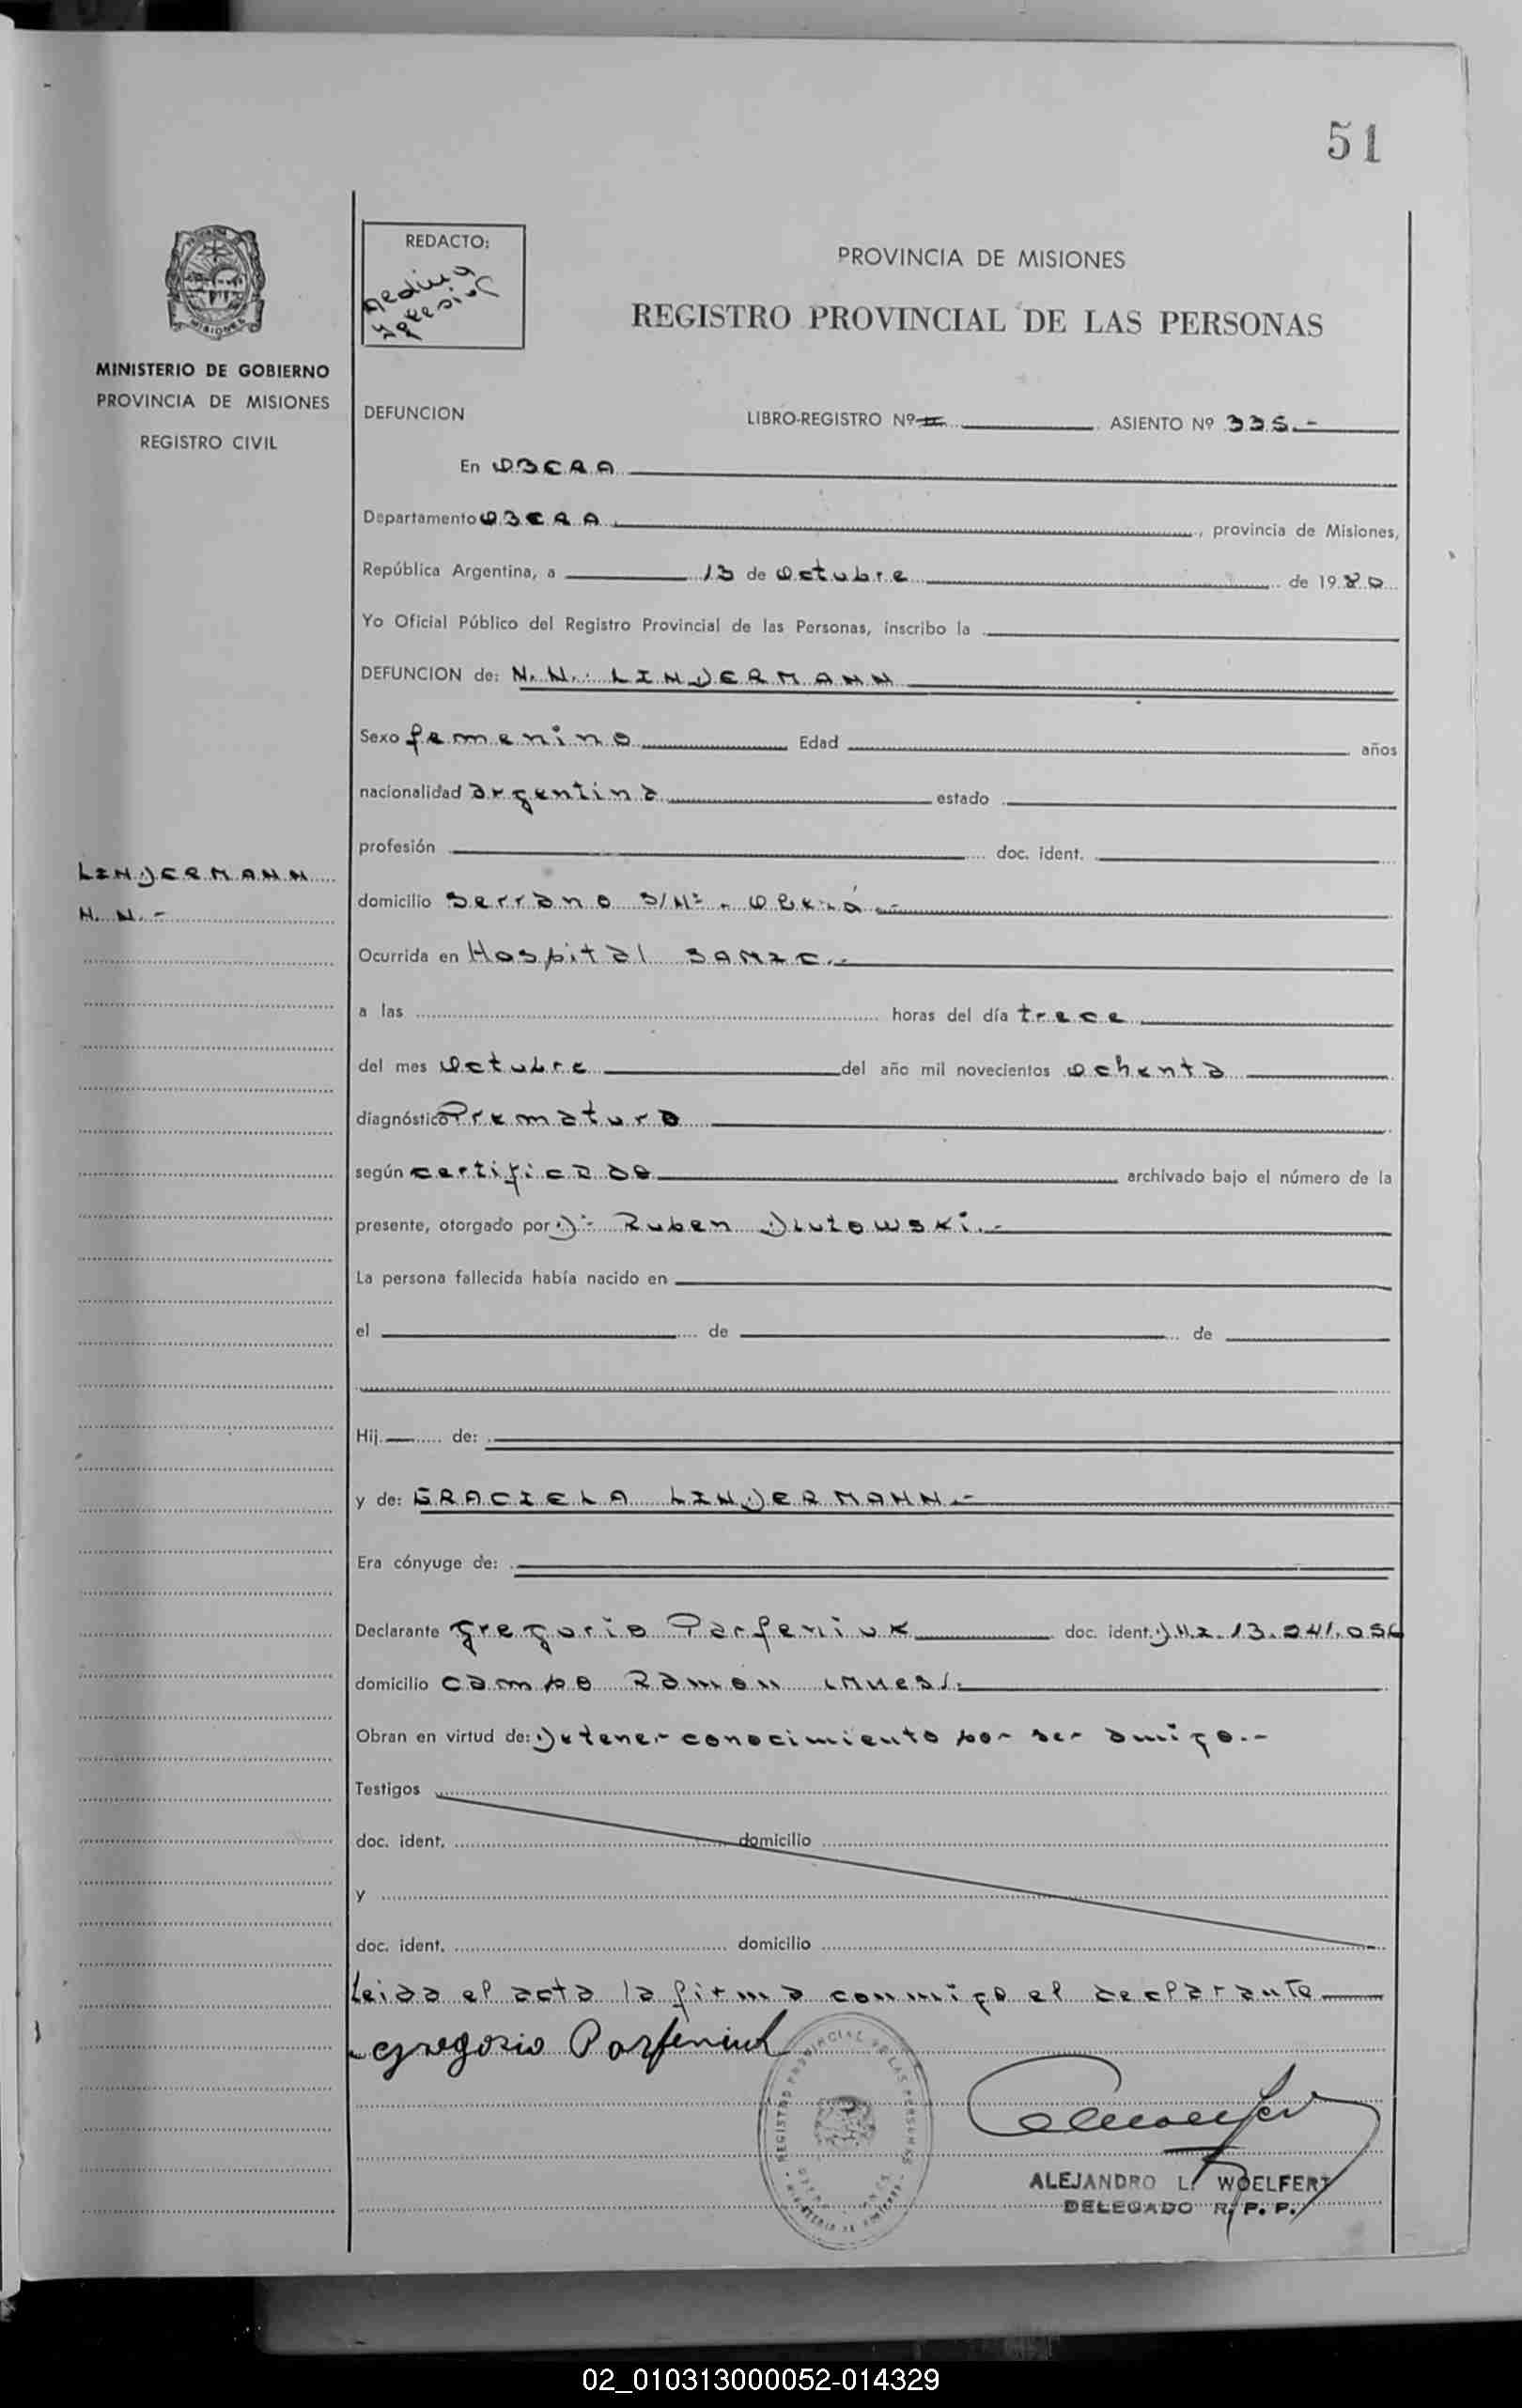 51
REDACTO:
Medina
Yglesias
PROVINCIA DE MISIONES
REGISTRO PROVINCIAL DE LAS PERSONAS
MINISTERIO DE GOBIERNO
PROVINCIA DE MISIONES
REGISTRO CIVIL
DEFUNCION LIBRO-REGISTRO Nº II ASIENTO Nº 335.-
En OBERA
Departamento OBERA, provincia de Misiones,
República Argentina, a 13 de Octubre de 1980
Yo Oficial Público del Registro Provincial de las Personas, inscribo la
DEFUNCION de: N.N. LINDERMANN
Sexo femenino Edad años
nacionalidad argentina estado
profesión doc. ident.
LINDERMANN
N. N.-
domicilio Serrano S/Nº - Oberá.-
Ocurrida en Hospital SAMIC.-
a las horas del día trece
del mes Octubre del año mil novecientos ochenta
diagnóstico Prematuro
según certificado archivado bajo el número de la
presente, otorgado por Dr Ruben Dlutowski.-
La persona fallecida había nacido en
el de de
Hij de:
y de: GRACIELA LINDERMANN.-
Era cónyuge de:
Declarante Gregorio Parfeniuk doc. ident. DNI. 13.041.056
domicilio Campo Ramón (Mnes).
Obran en virtud de: De tener conocimiento por ser amigo.-
Testigos
doc. ident. domicilio
y
doc. ident. domicilio
Leida el acta la firma conmigo el declarante
Gregorio Parfeniuk
REGISTRO PROVINCIAL DE LAS PERSONAS
ALEJANDRO L. WOELFERT
DELEGADO R. P. P.
02_010313000052-014329